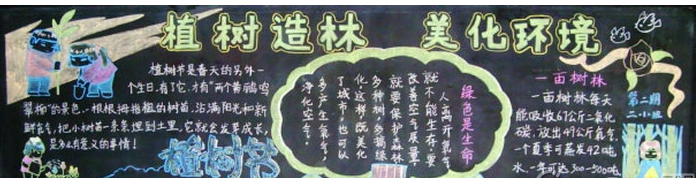 植树造林 美化环境
植树节是春天的另外一
个生日，有了它，才有“两个黄鹂鸣
翠柳”的景色，一根根拇指粗的树苗，沾满阳光和新
鲜氧气，把小树苗一条条迎到土里，它就会发芽成长，
是多么有意义的事情！
植树节
绿色是生命
人离开氧气
就不能生存，要
改善空气质量，
就要保护森林，
多种树，多搞绿
化，这样，既美化
了城市，也可以
多产生氧气，
净化空气。
一亩树林
一亩树林每天
能吸收67公斤二氧化
碳，放出49公斤氧气，
一个夏季可蒸发42吨
水，一年可达300-500吨
第二期
二.小.班